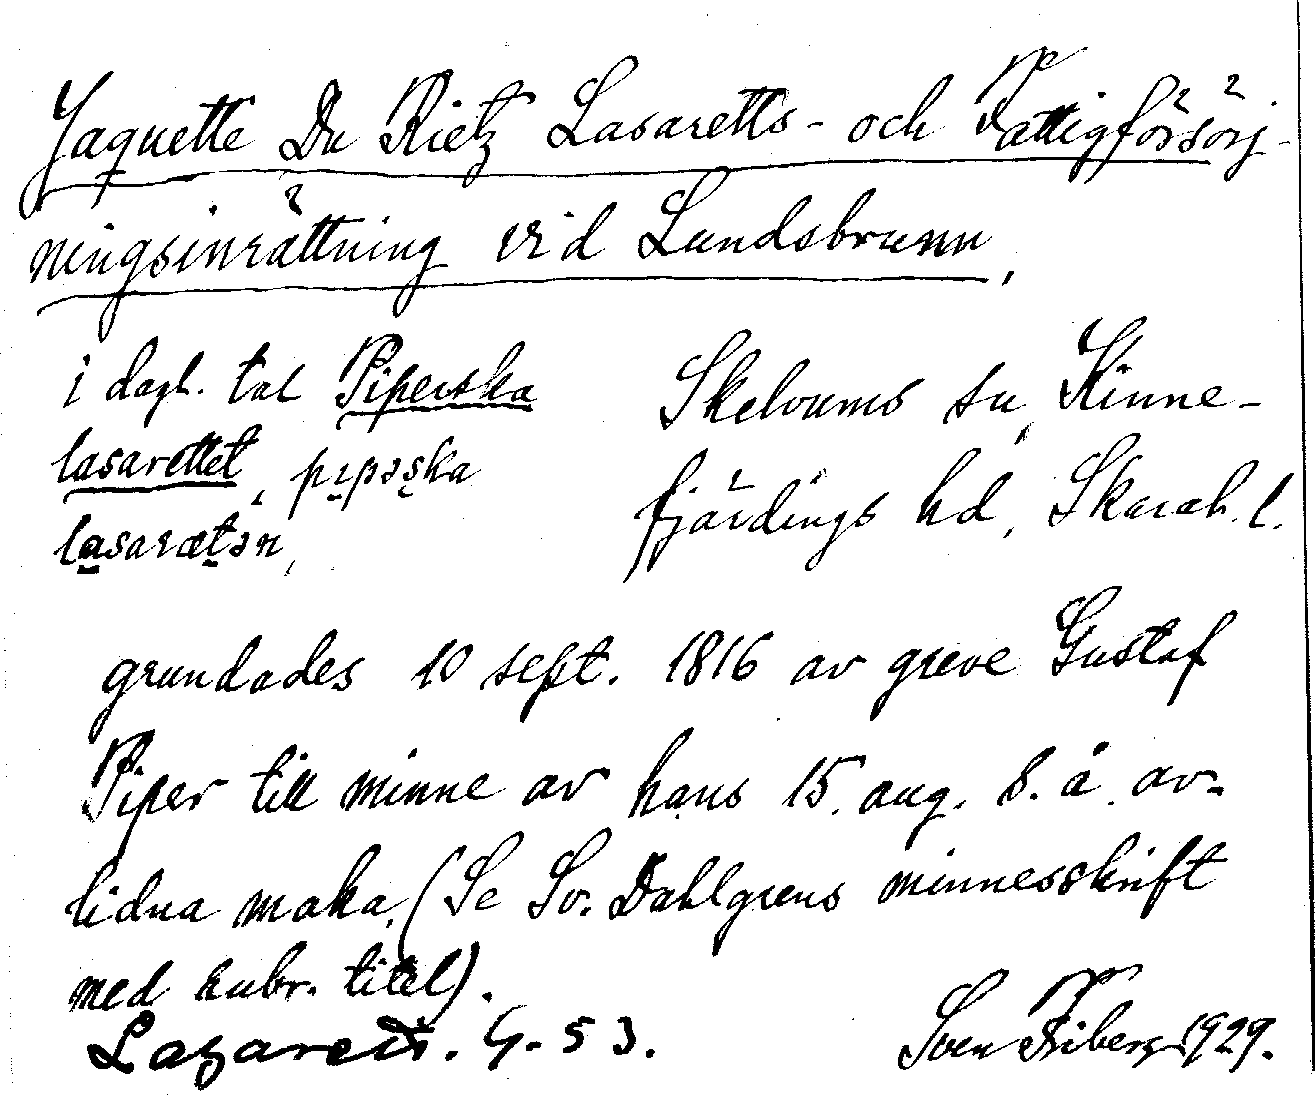 Jaquette Du Rietz Lasaretts- och Fattigförsörj-
ningsinrättning vid Lundsbrunn,
i dagl. tal Piperska
lasarettet, pɪpəska
lasarætən,
Skelvums sn, Kinne-
fjärdings hd, Skarab. l.
grundades 10 sept. 1816 av greve Gustaf
Piper till minne av hans 15. aug. s. å. av-
lidna maka. (Se Sv. Dahlgrens minnesskrift
med rubr. titel).
Lazarett. G. 53.
Sven Friberg 1929.